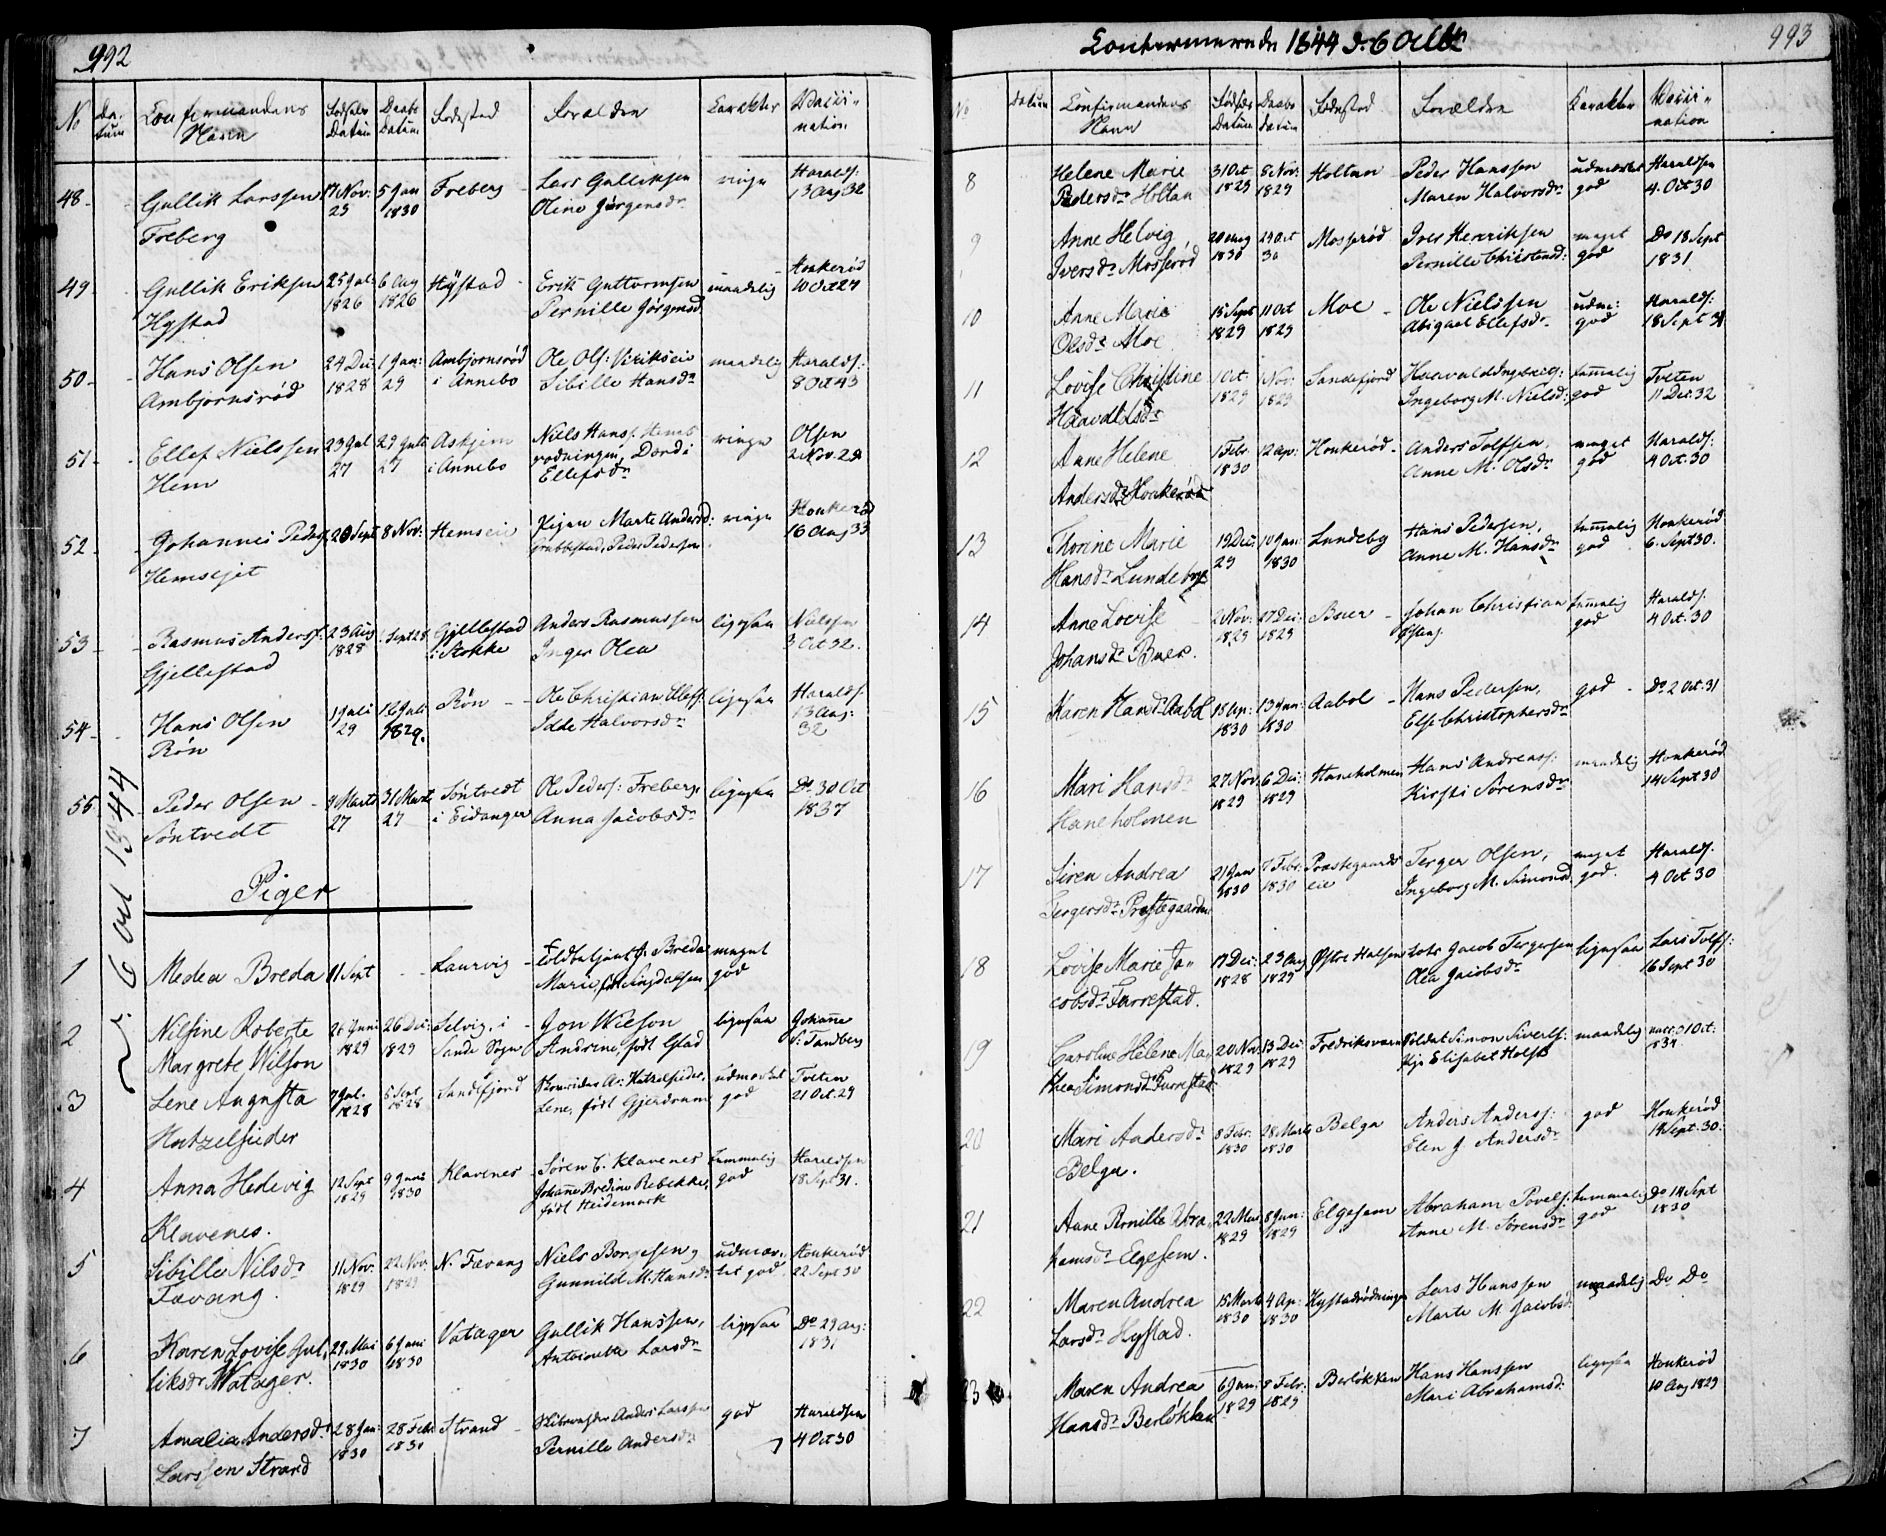 992
No Da-tum Confirmandens Navn Fødsels Datum Daabs Datum Fødested Forældre Carakter Vacci-nation
48 Gullik Larssen Freberg 17 Nov: 5 Jan 1830 Freberg Lars Gulliksen Oline Jørgensdr ringe Haralds: 13 Aug 32
49 Gullik Eriksen Hystad 25 Jul 1826 6 Aug 1826 Hystad Erik Guttormsen Pernille Jørgensd maadelig Honkerød 10 Oct 27
50 Hans Olsen Ambjørnsrød 24 Dec 1828 1 Jan: 29 Ambjørnsrød i Annebo Ole Ols: Sibille Hansdr maadelig Haralds: 8 Oct 43
51 Ellef Nielssen Hem 23 Jul 27 29 Juli 27 Askjem i Annebo Niels Hans: Hems rødningen, Dordi Ellefsdr ringe Olsen 2 Nov. 28
52 Johannes Peders: Hemsejet 20 Sept 8 Nov: Hemseie Pigen Marte Andersd: Grubbestad, Peder Pedersen ringe Honkerød 16 Aug 33
53 Rasmus Anders: Gjellestad 23 Aug 1828 Sept 28 Gjellestad i Stokke Anders Rasmussen Inger Olea ligesaa Nielssen 3 Oct 32.
54 Hans Olsen Røn 1 Juli 29 16 Juli 1829. Røn Ole Christian Ellefs: Idde Halvorsdr ligesaa Haralds: 13 Aug: 32
55 Peder Olsen Søntvedt 9 Marts 27 31 Marts 27 Søntvedt i Eidanger Ole Peders: Freberg, Anna Jacobsdr ligesaa Do 30 Oct 1837
d. 6 Oct 1844
Piger
1 Medea Breda 11 Sept Laurvig Toldbetjent J. Breda Marie, Singdalsen meget god
2 Nilsine Roberte Margrete Wilson 26 Juni 1829 26 Dec: 1829 Selvig, i Sande Sogn Jon Wilson Andrine, født Glad ligesaa Johanne S: Tandberg
3 Lene Augusta Hatzelfieder 7 Jul. 1828 5 Sept 1828 Sandefjord A: Hatzelfieder, Lene, født Gjerdrum udmærket god Tveten 21 Oct. 29
4 Anna Hedevig Klavenes. 12 Sept 1829 9 Juni 1830 Klavenes Søren C. Klavenes Johanne Bredine Rebekke, født Heidemark temmelig god Haraldsen 18 Sept 31.
5 Sibille Nilsdr Fævang. 11 Nov: 1829 22 Nov: 1829 N. Fævang Niels Borgesen, Gunnild M. Hansdr udmær-ket god Honkerød 22 Sept 30
6 Karen Lovise Gul-liksdr Vatager. 29 Mai 1830 6 Juni 1830 Vatager Gullik Hanssen, Antoinette Larsdr ligesaa Do 29 Aug: 1831
7 Amalia Andersdr Larssen Strand 28 Jan: 1830 28 Feb: 1830 Strand Anders Larssen Pernille Andersdr god Haraldsen 4 Oct 30
Confirmerede 1844 d: 6 Octbr
993
No Datum Confirmandens Navn Fødsels Datum Daabs Datum Fødested Forældre Karakter Vacci-nation
8 Helene Marie Pedersdr Holtan 31 Oct 1829 8 Nov: 1829 Holtan Peder Hanssen Maren Halvorsdr udmærket god Haraldsen 4. Oct 30
9 Anne Helvig Iversdr Mosserød 20 Aug 1830 24 Oct 30 Mosserød Iver Henriksen Pernille Christensd: meget god Do 18 Sept 1831
10 Anne Marie Olsdr Moe 15 Sept 1829 11 Oct 1829 Moe Ole Nielssen Abigael Ellefsdr udm: god Haralds: 18 Sept 31
11 Lovise Christine Haavaldsdr 1 Oct 1829 1 Nov: 1829 Sandefjord Ingeborg M. Nielsd: temmelig god Tveten 11 Dec. 32
12 Anne Helene Andersdr Honkerød 1 Febr 1830 12 Ap: Honkerød Anders Tolfsen, Anne M. Olsdr meget god Haralds: 4 Oct. 30
13 Thorine Marie Hansdr Lundeby 19 Dec: 29 10 Jan: 1830 Lundeby Hans Pedersen, Anne M. Hansdr temmelig god Honkerød 6. Sept 30.
14 Anne Lovise Johansdr Buer. 2 Nov: 1829 17 Dec: 1829 Buer Johan Christian temmelig god Haralds: 4 Oct. 30
15 Karen Hansdr Aabol 18 Ap: 1830 13 Jun: 1830 Aabol Hans Pedersen, Else Christophersdr god Do 2 Oct. 31
16 Mari Hansdr Haneholmen 27 Nov: 1829 6 Dec: 1829 Haneholmen Hans Andreas: Kirsti Sørensdr maadelig Honkerød 14 Sept 30
17 Siren Andrea Tergersdr Præstegaarden 21 Jan 1830 7 Febr: 1830 Præstegaards eie Terger Olsen, Ingeborg M. Simonsd meget god. Haralds: 4 Oct 30
18 Lovise Marie Ja-cobsdr Furrestad. 17 Dec: 1828 23 Aug 1829 Østre Halsen Lods Jacob Tergersen Olea Jacobsdr ligesaa Lars Tolfs: 16 Sept 30
19 Caroline Helene Ma-thea Simonsdr Furrestad 20 Nov: 1829 13 Dec: 1829 Fredriksværn Soldat Simon Siverts: Pige Elisabet Holst maadelig vacc. 31 Oct: 1834
20 Mari Andersdr Belga. 8 Febr: 1830 28 Marts 1830 Belga Anders Anders: Elen J Andersdr god Honkerød 19 Sept. 30.
21 Anne Pernille Abra-hamsdr Elgesem. 22 Mai 1829 8 Jun: 1829 Elgesem Abraham Povels: Anne M. Sørensdr temmelig god Do 14 Sept 1830
22 Maren Andrea Larsdr Hystad. 15 Marts 1830 4 Ap: 1830 Hystadrødningen Lars Hanssen Marte M. Jacobsd: maadelig Do Do
23 Maren Andrea Hansdr Berløkken 6 Jan: 1829 8 Febr: 1829 Berløkken Hans Hanssen Mari Abrahamsd: ligesaa Honkerød 10 Aug 1829